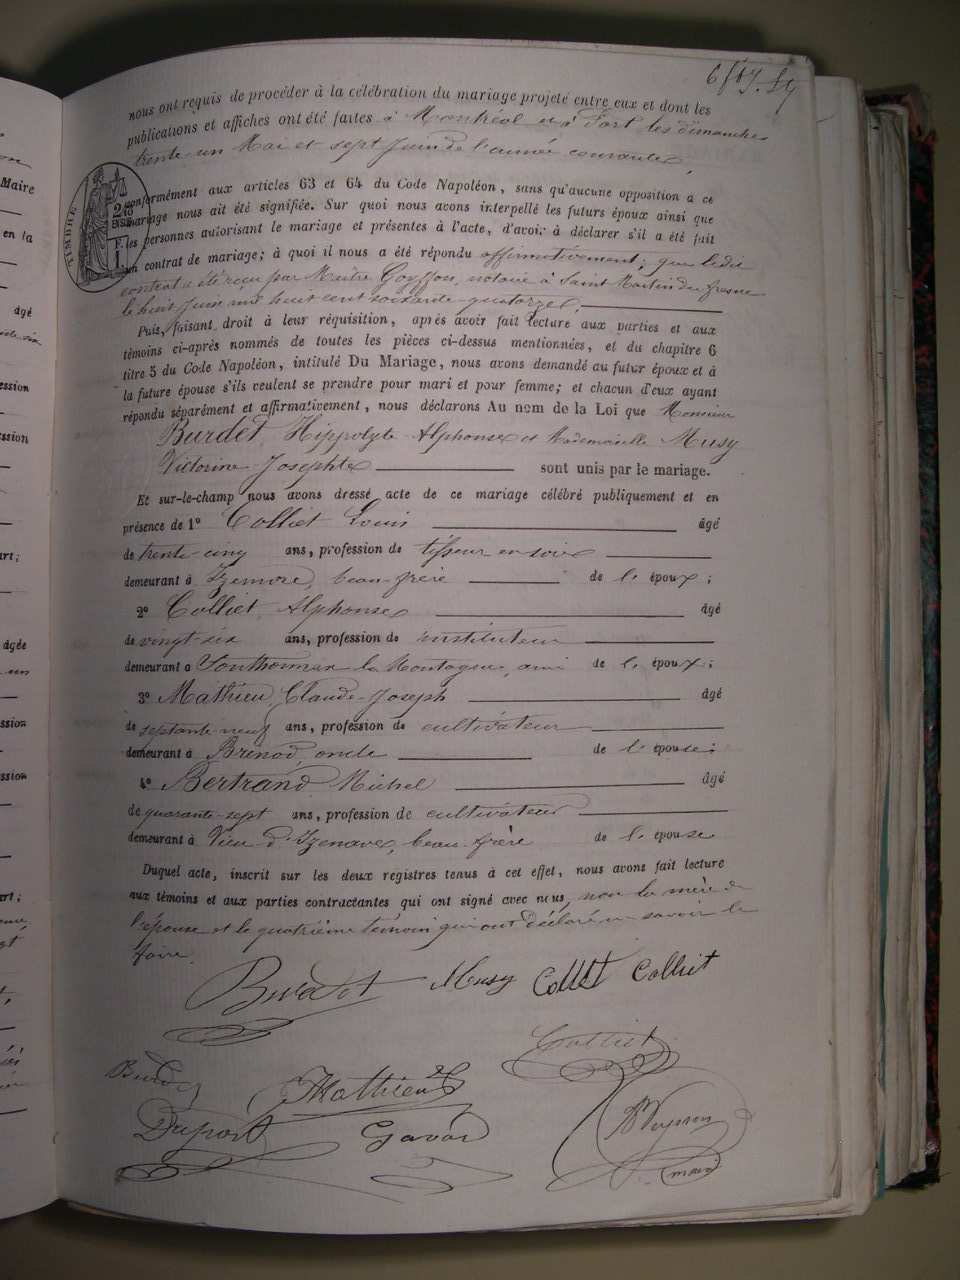 nous ont requis de procéder à la célébration du mariage projeté entre eux et dont les
publications et affiches ont été faites à Montréal et à Port les dimanches
trente-un Mai et sept Juin de l'année courante
conformément aux articles 63 et 64 du Code Napoléon, sans qu'aucune opposition à ce
mariage nous ait été signifiée. Sur quoi nous avons interpellé les futurs époux ainsi que
les personnes autorisant le mariage et présentes à l'acte, d'avoir à déclarer s'il a été fait
un contrat de mariage; à quoi il nous a été répondu affirmativement; que ledit
contrat a été reçu par Maître Goyffon, notaire à Saint Martin du fresne
le huit Juin mil huit cent soixante-quatorze,
Puis, faisant droit à leur réquisition, après avoir fait lecture aux parties et aux
témoins ci-après nommés de toutes les pièces ci-dessus mentionnées, et du chapitre 6
titre 5 du Code Napoléon, intitulé Du Mariage, nous avons demandé au futur époux et à
la future épouse s'ils veulent se prendre pour mari et pour femme; et chacun d'eux ayant
répondu séparément et affirmativement, nous déclarons Au nom de la Loi que Monsieur
Burdet, Hippolyte-Alphonse et Mademoiselle Musy
Victorine-Josephte sont unis par le mariage.
Et sur-le-champ nous avons dressé acte de ce mariage célébré publiquement et en
présence de 1° Colliet Louis âgé
de trente-cinq ans, profession de tisseur en soie
demeurant à Izernore, beau-frère de l'époux;
2° Colliet, Alphonse âgé
de vingt-six ans, profession de instituteur
demeurant à Sonthonnax la Montagne, ami de l'époux;
3° Mathieu, Claude-Joseph âgé
de septante-neuf ans, profession de cultivateur
demeurant à Brénod, oncle de l'épouse;
4° Bertrand Michel âgé
de quarante-sept ans, profession de cultivateur
demeurant à Vieu d'Izenave, beau-frère de l'épouse
Duquel acte, inscrit sur les deux registres tenus à cet effet, nous avons fait lecture
aux témoins et aux parties contractantes qui ont signé avec nous, non la mère de
l'épouse et le quatrième témoin qui ont déclaré ne savoir le
faire.
Burdet Musy Collet Colliet
Colliet
Burdet Mathieu
Dupont Gavard
maire
TIMBRE